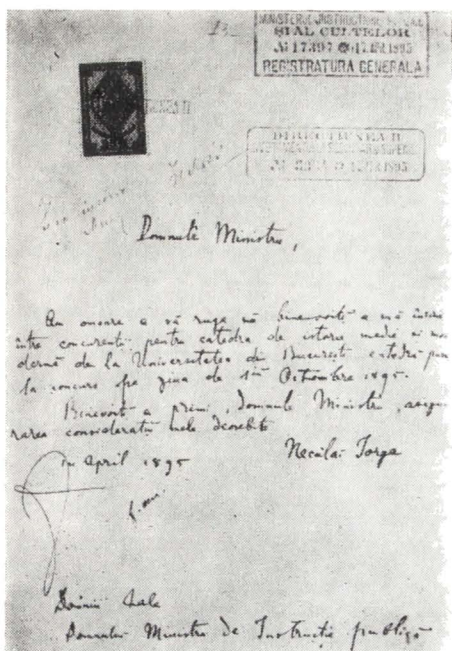 MINISTERUL INSTRUCTIUNII PUBLICE
ȘI AL CULTELOR
№ 17397 17 APR 1895
REGISTRATURA GENERALA
DIRECTIUNEA II
1895
Domnule Ministru,
Am onoare a vă ruga să binevoiți a mă înscrie
între concurenți pentru catedra de istorie medie si mo
dernă de la Universitatea din București catedră pusă
la concurs pe ziua de 1iu Octombre 1895.
Binevoiți a primi, Domnule Ministru, asigu
rarea consideratii mele deosebite
April 1895
Neculai Iorga
Domniei Sale
Domnului Ministru de Instructie publică